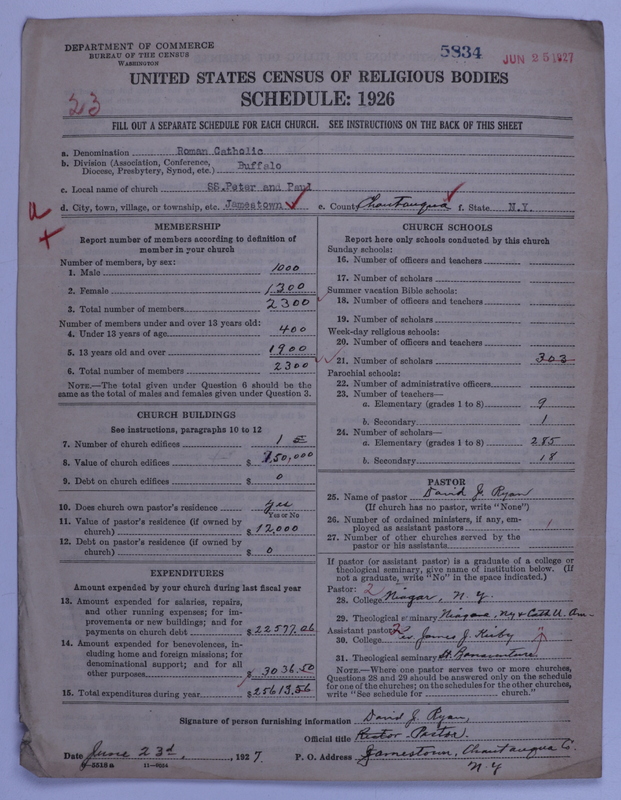 DEPARTMENT OF COMMERCE
BUREAU OF THE CENSUS
WASHINGTON
5834
JUN 25 1927
UNITED STATES CENSUS OF RELIGIOUS BODIES
SCHEDULE: 1926
23
FILL OUT A SEPARATE SCHEDULE FOR EACH CHURCH. SEE INSTRUCTIONS ON THE BACK OF THIS SHEET
a. Denomination Roman Catholic
b. Division (Association, Conference, Diocese, Presbytery, Synod, etc.) Buffalo
c. Local name of church SS.Peter and Paul
d. City, town, village, or township, etc. Jamestown e. County Chautauqua f. State N.Y.
MEMBERSHIP
Report number of members according to definition of
member in your church
Number of members, by sex:
1. Male 1000
2. Female 1300
3. Total number of members 2300
Number of members under and over 13 years old:
4. Under 13 years of age 400
5. 13 years old and over 1900
6. Total number of members 2300
NOTE.—The total given under Question 6 should be the
same as the total of males and females given under Question 3.
CHURCH BUILDINGS
See instructions, paragraphs 10 to 12
7. Number of church edifices 1
8. Value of church edifices $ 150,000
9. Debt on church edifices $ 0
10. Does church own pastor's residence yes
Yes or No
11. Value of pastor's residence (if owned by
church) $ 12,000
12. Debt on pastor's residence (if owned by
church) $ 0
EXPENDITURES
Amount expended by your church during last fiscal year
13. Amount expended for salaries, repairs,
and other running expenses; for im-
provements or new buildings; and for
payments on church debt $ 22577.06
14. Amount expended for benevolences, in-
cluding home and foreign missions; for
denominational support; and for all
other purposes $ 3036.50
15. Total expenditures during year $ 25613.56
CHURCH SCHOOLS
Report here only schools conducted by this church
Sunday schools:
16. Number of officers and teachers
17. Number of scholars
Summer vacation Bible schools:
18. Number of officers and teachers
19. Number of scholars
Week-day religious schools:
20. Number of officers and teachers
21. Number of scholars 303
Parochial schools:
22. Number of administrative officers
23. Number of teachers—
a. Elementary (grades 1 to 8) 9
b. Secondary 1
24. Number of scholars—
a. Elementary (grades 1 to 8) 285
b. Secondary 18
PASTOR
25. Name of pastor David J. Ryan
(If church has no pastor, write "None")
26. Number of ordained ministers, if any, em-
ployed as assistant pastors 1
27. Number of other churches served by the
pastor or his assistants
If pastor (or assistant pastor) is a graduate of a college or
theological seminary, give name of institution below. (If
not a graduate, write "No" in the space indicated.)
Pastor: 2
28. College Niagar, N.Y.
29. Theological seminary Niagara, NY & Cath U. Am
Assistant pastor: 2
30. College Rev James J. Kirby
31. Theological seminary St. Bonaventure
NOTE.—Where one pastor serves two or more churches,
Questions 28 and 29 should be answered only on the schedule
for one of the churches; on the schedules for the other churches,
write "See schedule for church."
Signature of person furnishing information David J. Ryan,
Official title Rector-Pastor
Date June 23d, 1927. P. O. Address Jamestown, Chautauqua Co.
N.Y
11—9554